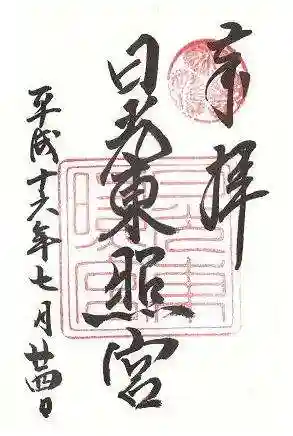 奉拝
日光東照宮
平成十六年七月廿四日